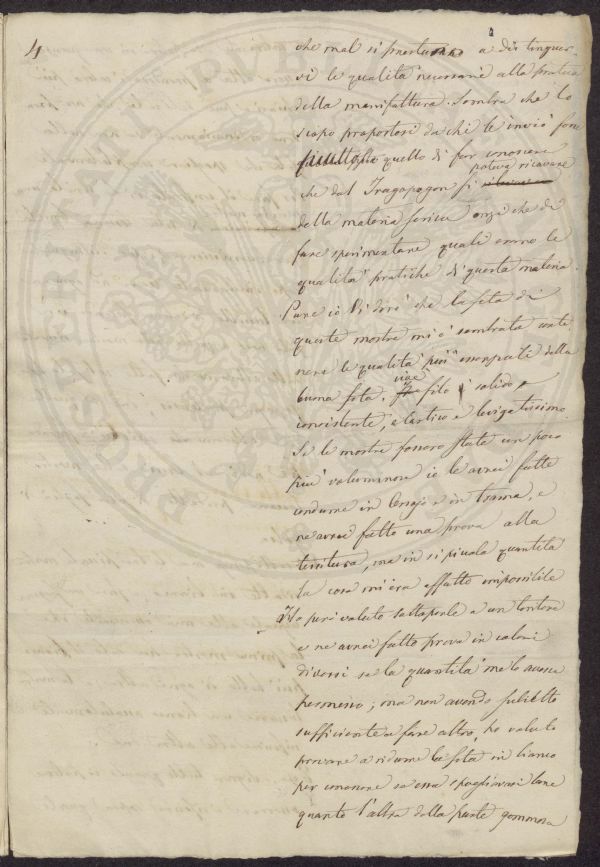 4
che mal si prestano a distinguer-
si le qualità necessarie alla pratica
della manifattura. Sembra che lo
scopo propostosi da chi le inviò fosse
piuttosto quello di far conoscere
che dal Tragopogon si poteva ricavare
della materia serica anzi che di
fare sperimentare quali erano le
qualità pratiche di questa materia.
Pure io Vi dirò che la seta di
queste mostre mi è sembrata conte-
nere le qualità più essenziali della
buona seta, cioè filo solido
consistente, elastico e levigatissimo.
Se le mostre fossero state un poco
più voluminose io le avrei fatte
condurre in Orsojo e in trama, e
ne avrei fatto una prova alla
tessitura, ma in sì piccola quantità
la cosa mi era affatto impossibile
Ho però voluto sottoporle a un tintore
e ne avrei fatto prova in colori
diversi se la quantità me lo avesse
permesso; ma non avendo subietto
sufficiente a fare altro, ho voluto
provare a ridurre la seta in bianco
per conoscere se essa spogliavasi bene
quanto l'altra dalla parte gommosa
PUBLI
PROSPERITATI